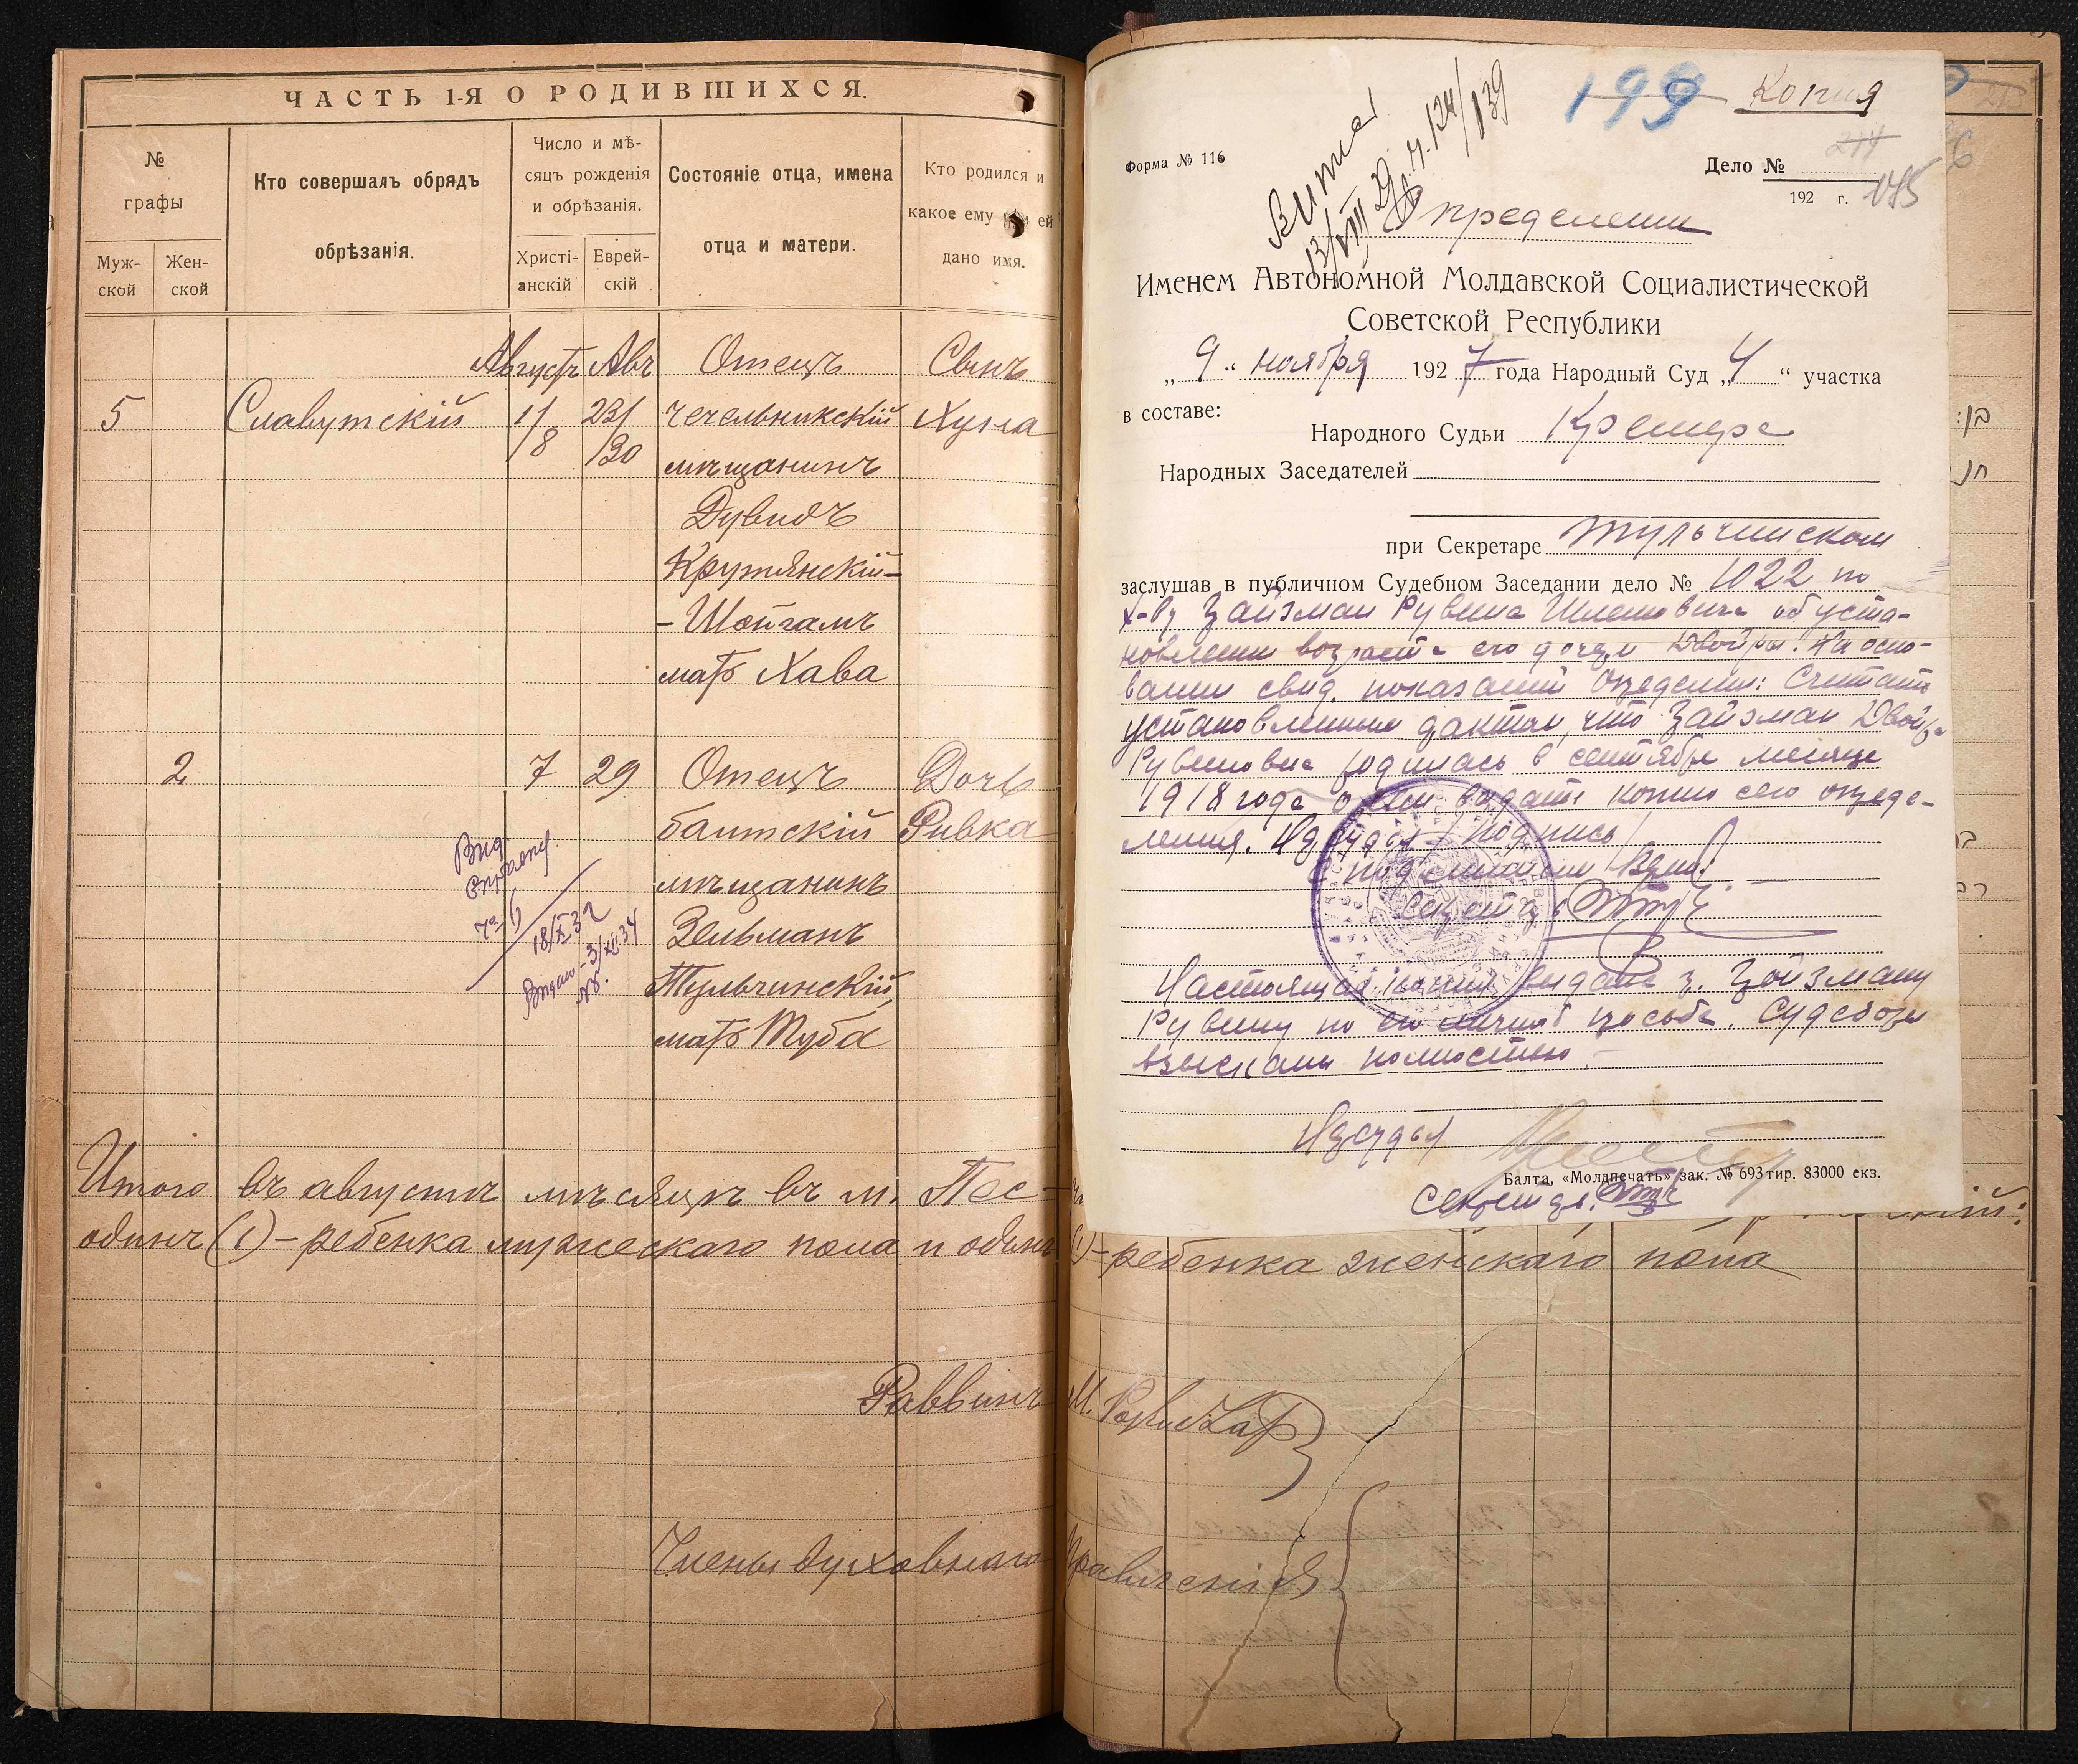 ЧАСТЬ 1-Я О РОДИВШИХСЯ.
№ графы
Муж-ской
Жен-ской
Кто совершалъ обрядъ обрѣзанія.
Число и мѣ-сяцъ рожденія и обрѣзанія.
Христі-анскій
Еврей-скій
Состояніе отца, имена отца и матери.
Кто родился и какое ему или ей дано имя.
Августъ Авъ Отецъ Сынъ
5 Славутскій 1/8 23/30 чечельникскій Хуна
мѣщанинъ
Дувидъ
Крутянскій-
-Шойгамъ
мать Хава
2 7 29 Отецъ Дочь
балтскій Ривка
мѣщанинъ
Зельманъ
Тульчинскій,
мать Туба
Выд.
справку
18/XI 32
Видано - 3/XII 34
Итого въ августѣ мѣсяцѣ въ м. Пес-
одинъ (1) - ребенка мужескаго пола и одинъ (1) - ребенка женскаго пола
Раввинъ М.
Члены духовнаго Правленія
199 Копия
Форма № 116
Дело №
192 г.
Определение
Именем Автономной Молдавской Социалистической
Советской Республики
„9“ ноября 1927 года Народный Суд „4“ участка
в составе:
Народного Судьи Кремера
Народных Заседателей
при Секретаре Тульчинском
заслушав в публичном Судебном Заседании дело № 1022 по
х-ву Зайзман Рувина Шлемовича об уста-
новлении возраста его дочери Двойры. На осно-
вании свид. показаний Определил: Считать
установленным фактом, что Зайзман Двойра
Рувиновна родилась в сентябре месяце
1918 года о чем выдать копию сего опреде-
ления. Нарсудья / подпись /
С подлинным верно:
Секретарь
Настоящая копия выдана г. Зайзману
Рувину по его личной просьбе. Судсборы
взысканы полностью.
Нарсудья
Балта, «Молдпечать» зак. № 693 тир. 83000 екз.
Секретарь